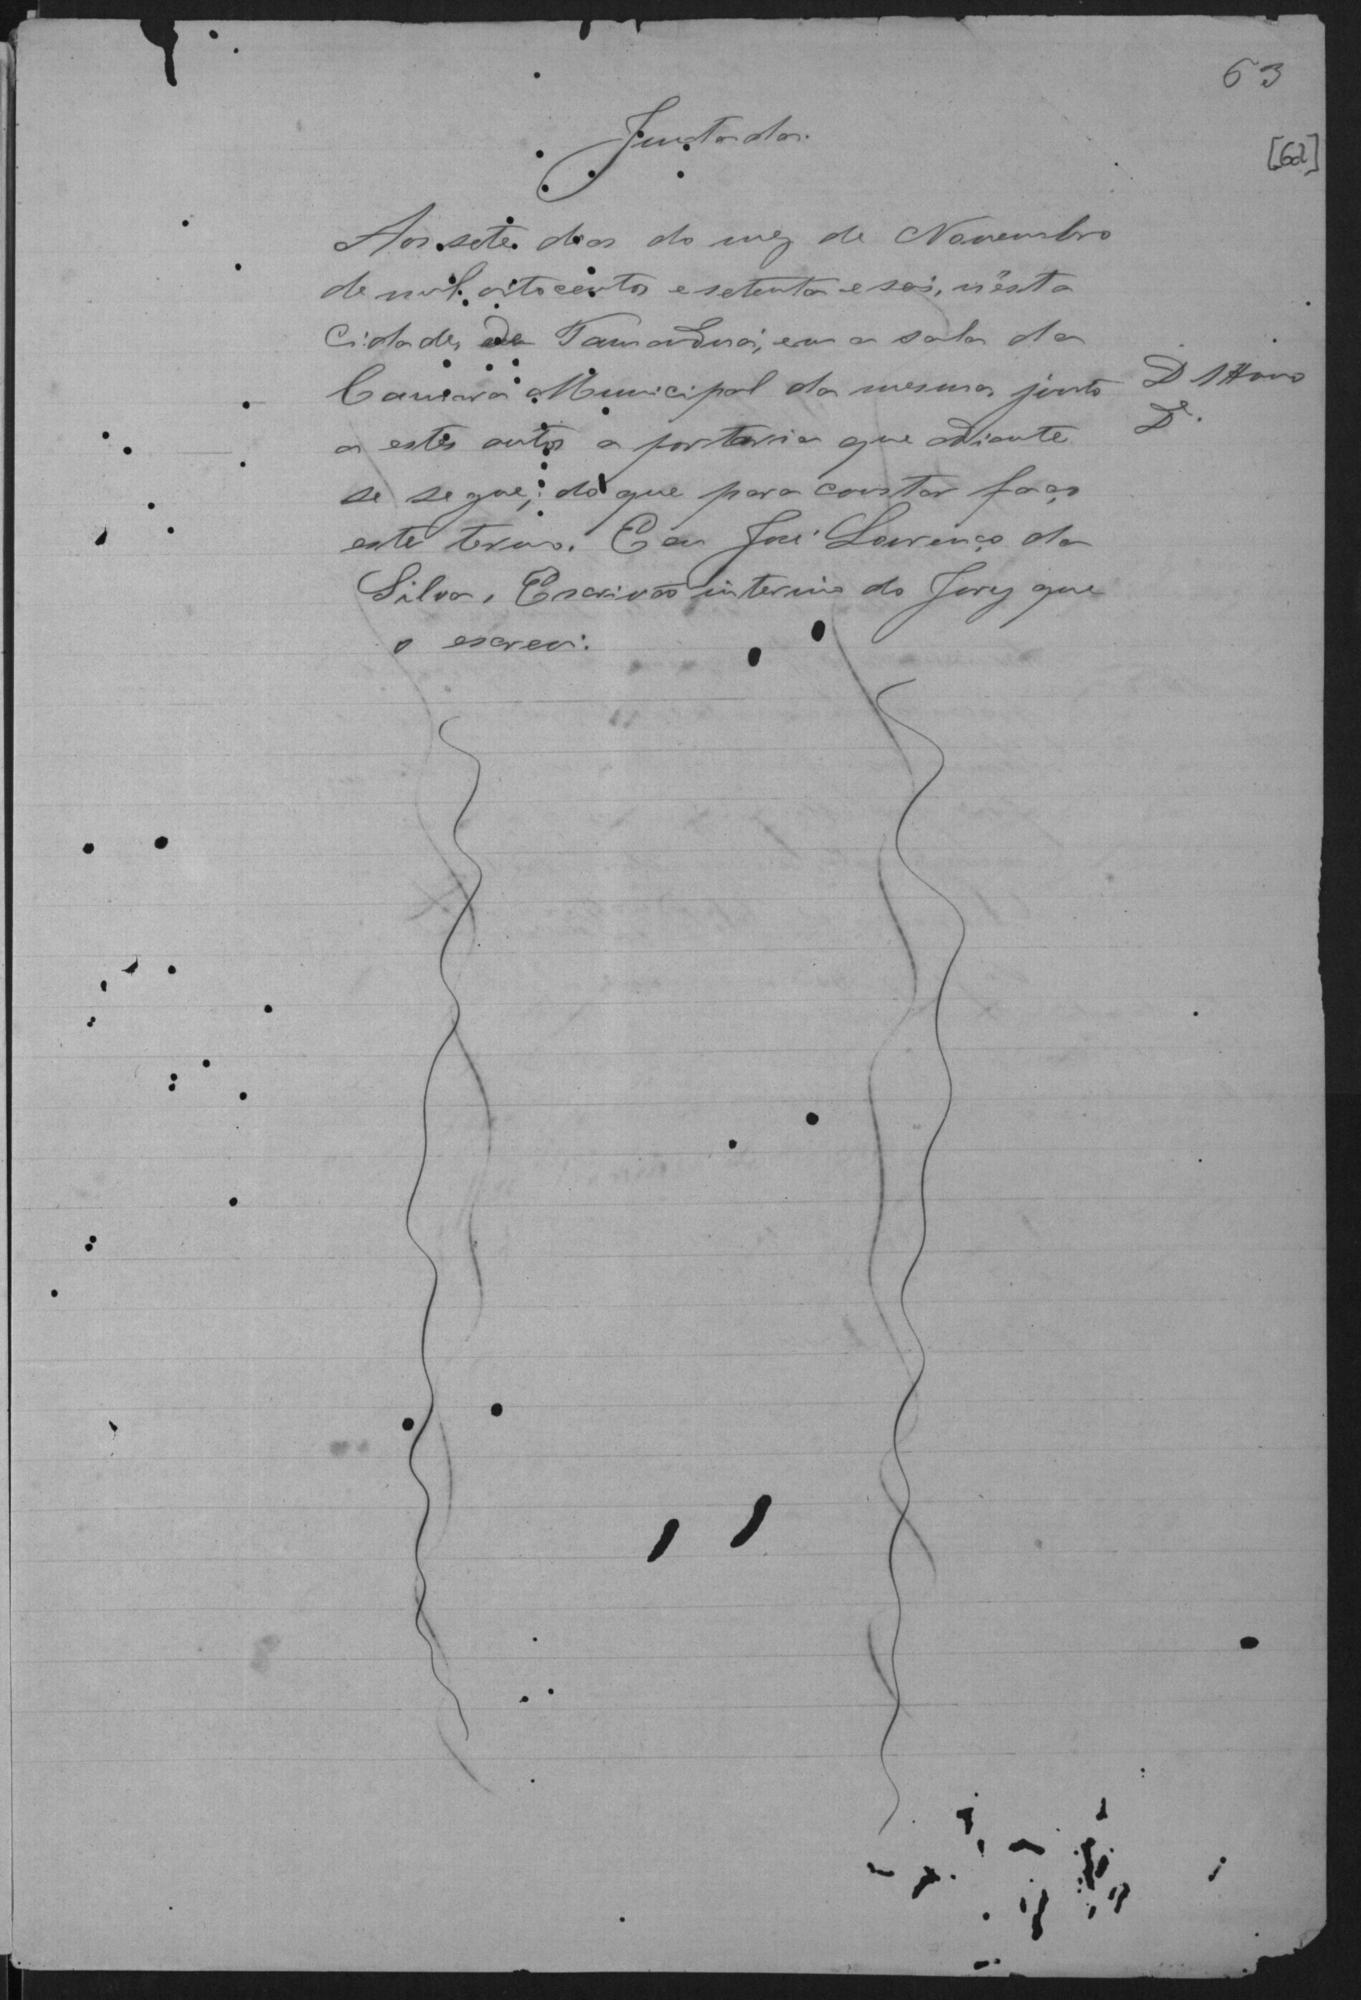 63
[62]
Juntada.
Aos sete dias do mez de Novembro
de mil oitocentos e setenta e seis, n'esta
Cidade, de Tamanduá, em a sala da
Camara Municipal da mesma, junto
a estes autos a portaria que adiante
se segue; do que para constar faço
este termo. Eu José Lourenço da
Silva, Escrivão interino do Jury que
o escrevi.